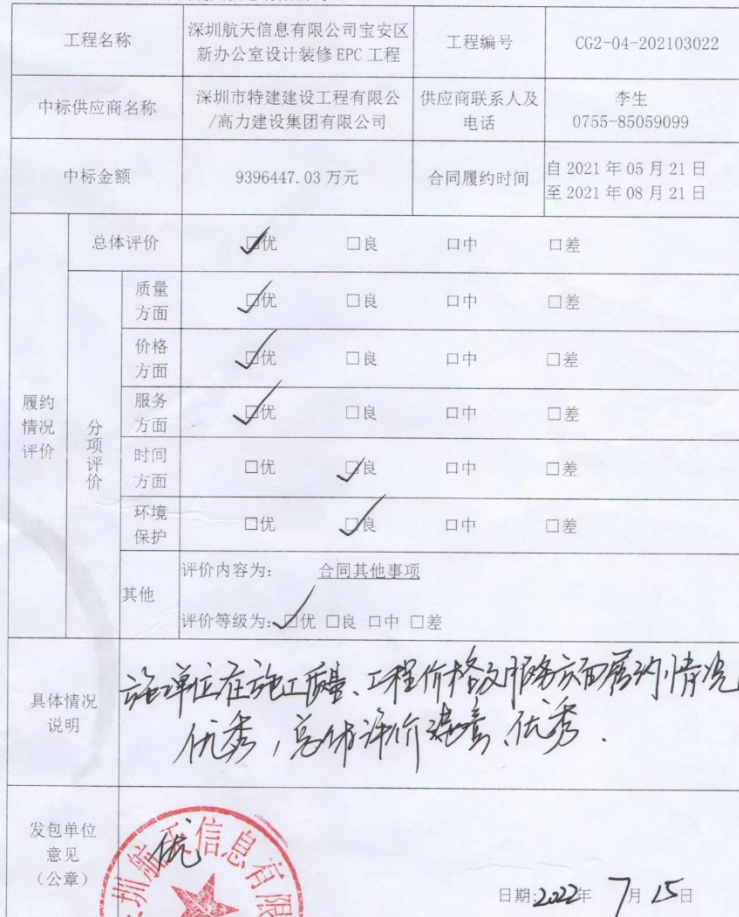 工程名称
深圳航天信息有限公司宝安区
新办公室设计装修 EPC 工程
工程编号
CG2-04-202103022
中标供应商名称
深圳市特建建设工程有限公
/高力建设集团有限公司
供应商联系人及
电话
李生
0755-85059099
中标金额
9396447.03 万元
合同履约时间
自 2021 年 05 月 21 日
至 2021 年 08 月 21 日
履约
情况
评价
总体评价
□优 □良 □中 □差
分项评价
质量
方面
□优 □良 □中 □差
价格
方面
□优 □良 □中 □差
服务
方面
□优 □良 □中 □差
时间
方面
□优 □良 □中 □差
环境
保护
□优 □良 □中 □差
其他
评价内容为： 合同其他事项
评价等级为：□优 □良 □中 □差
具体情况
说明
施工单位在施工质量、工程价格及服务方面履约情况
优秀，总体评价 优秀.
发包单位
意见
（公章）
优
圳航天信息有限
日期:2022年 7月 15日